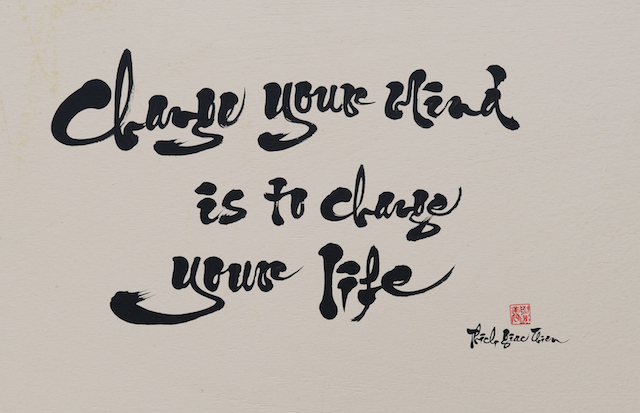 Change your Mind
is to change
your life
Thich Giac Thien